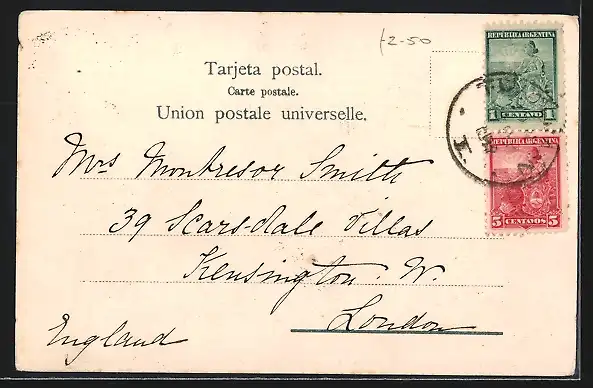 12-50
Tarjeta postal.
Carte postale.
Union postale universelle.
REPUBLICA ARGENTINA
1 CENTAVO 1
REPUBLICA ARGENTINA
5 CENTAVOS 5
Mrs Montresor Smith
39 Scarsdale Villas
Kensington. W.
London
England